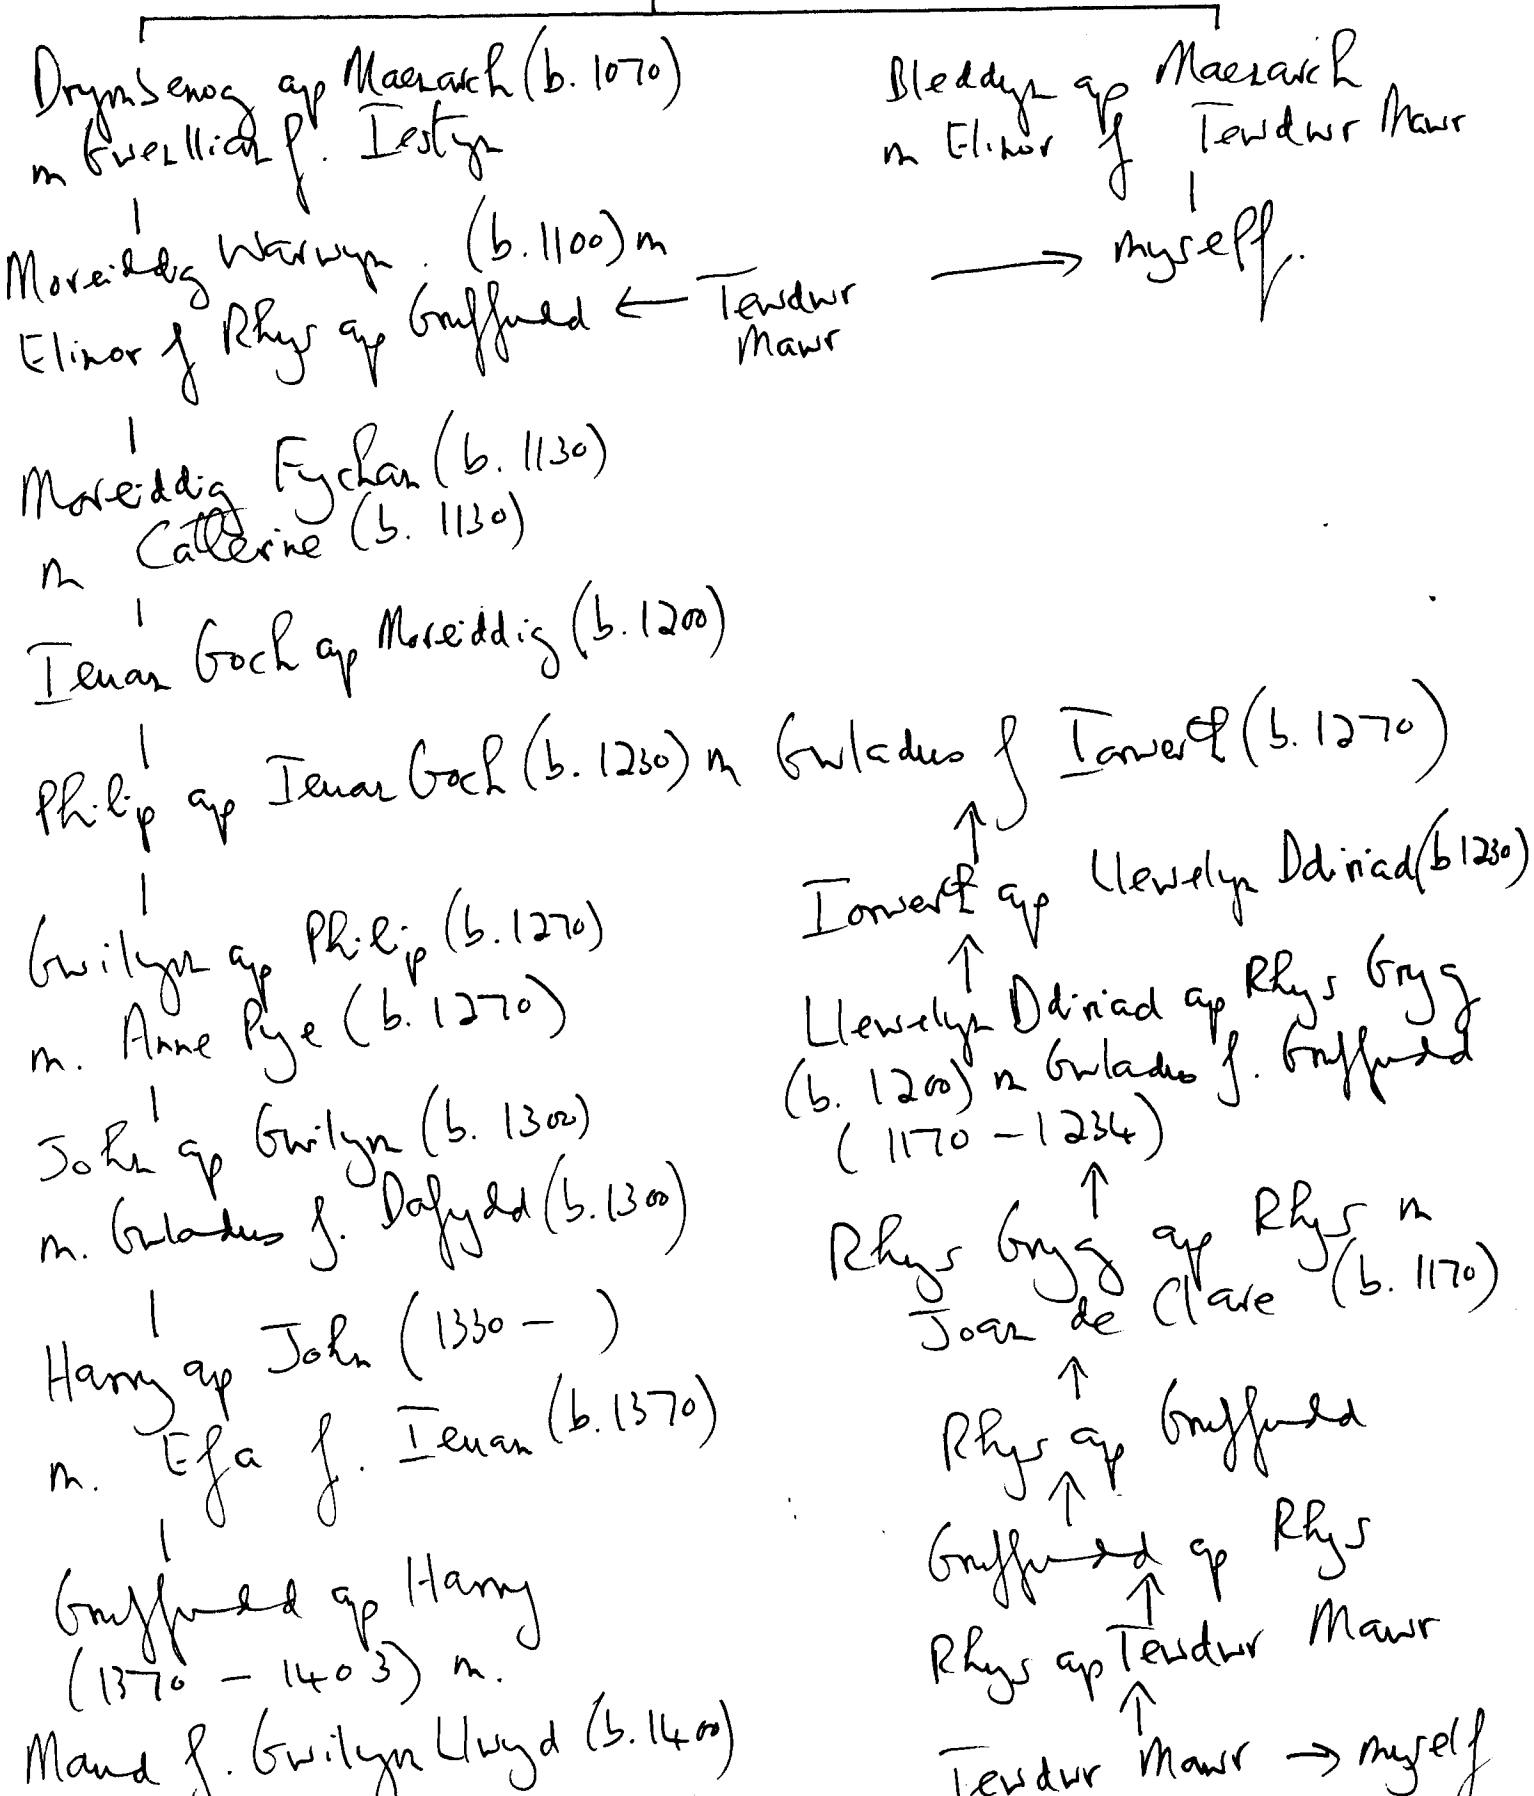 Drymbenog ap Maenarch (b. 1070)
m Gwenllian f. Iestyn
Bleddyn ap Maenarch
m Elinor f Tewdwr Mawr
Moreiddig Warwyn. (b. 1100) m
Elinor f Rhys ap Gruffudd ← Tewdwr
Mawr
→ myself.
Moreiddig Fychan (b. 1130)
m Catherine (b. 1130)
Ieuan Goch ap Moreiddig (b. 1200)
Philip ap Ieuan Goch (b. 1230) m Gwladus f Iorwerth (b. 1270)
Gwilym ap Philip (b. 1270)
m. Anne Pye (b. 1270)
John ap Gwilym (b. 1300)
m. Gwladus f. Dafydd (b. 1300)
Harry ap John (1330 - )
m. Efa f. Ieuan (b. 1370)
Gruffudd ap Harry
(1370 - 1403) m.
Maud f. Gwilym Llwyd (b. 1400)
Iorwerth ap Llewelyn Ddiriad (b 1230)
Llewelyn Ddiriad ap Rhys Gryg
(b. 1200) m Gwladus f. Gruffudd
(1170 - 1234)
Rhys Gryg ap Rhys m
Joan de Clare (b. 1170)
Rhys ap Gruffudd
Gruffudd ap Rhys
Rhys ap Tewdwr Mawr
Tewdwr Mawr → myself